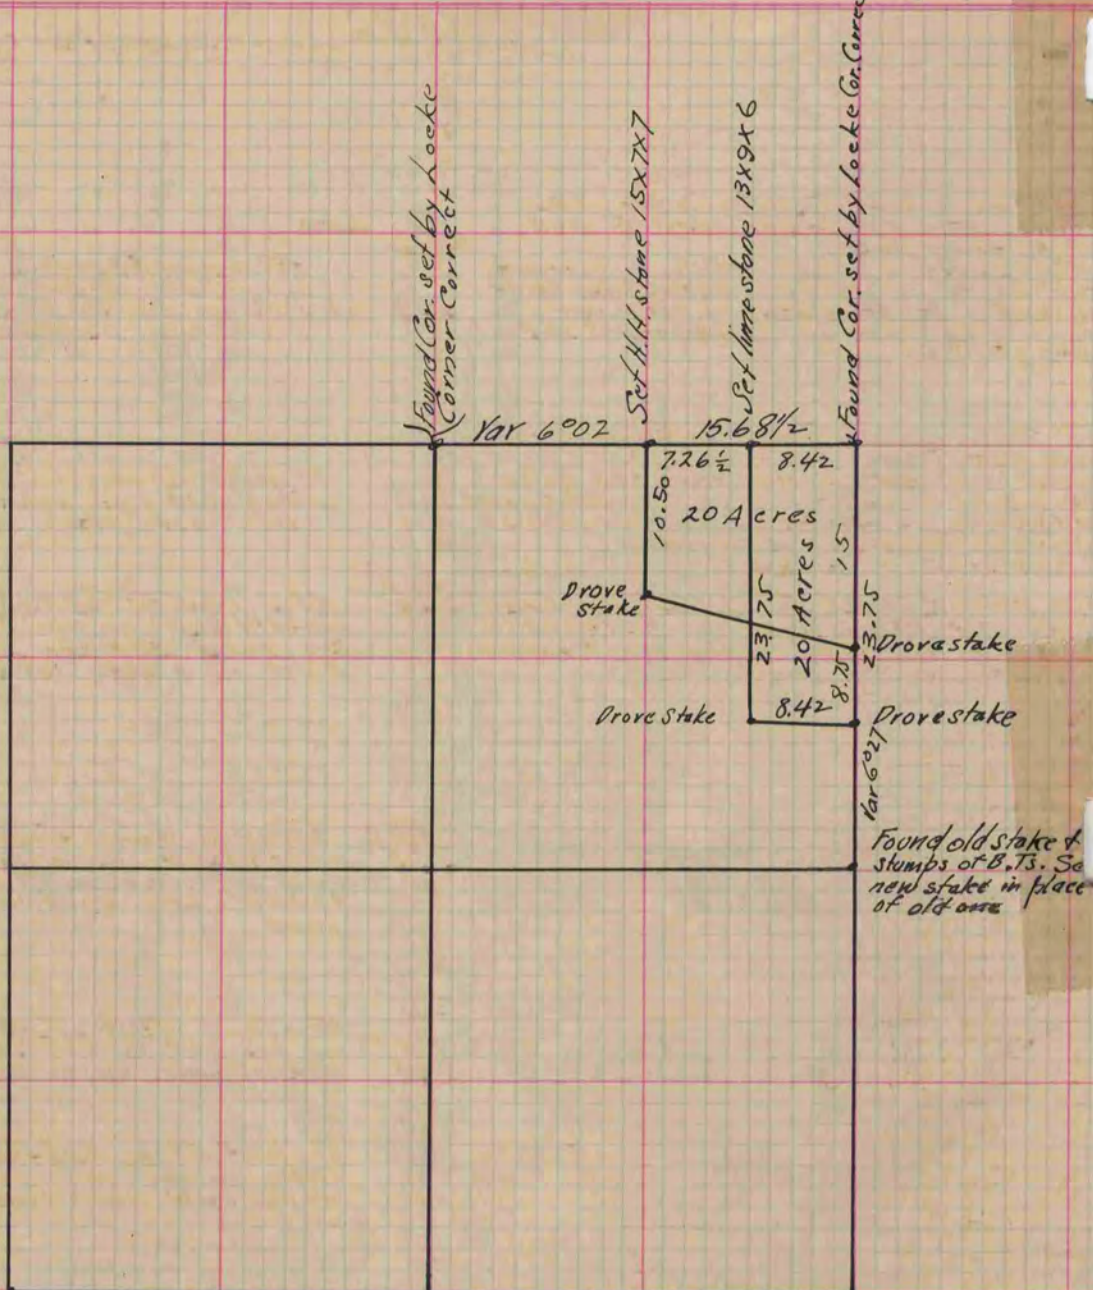 Found Cor. set by Locke
Corner Correct
Set H.H. stone 15x7x7
Set lime stone 13x9x6
Found Cor. set by Locke Cor. Correc
Var 6°02
15.68½
7.26½
8.42
10.50
20 Acres
15
23.75
20 Acres
23.75
Drove
stake
Drove stake
8.75
8.42
Drove Stake
Drove stake
Var 6°27
Found old stake &
stumps of B.Ts. Se
new stake in place
of old one